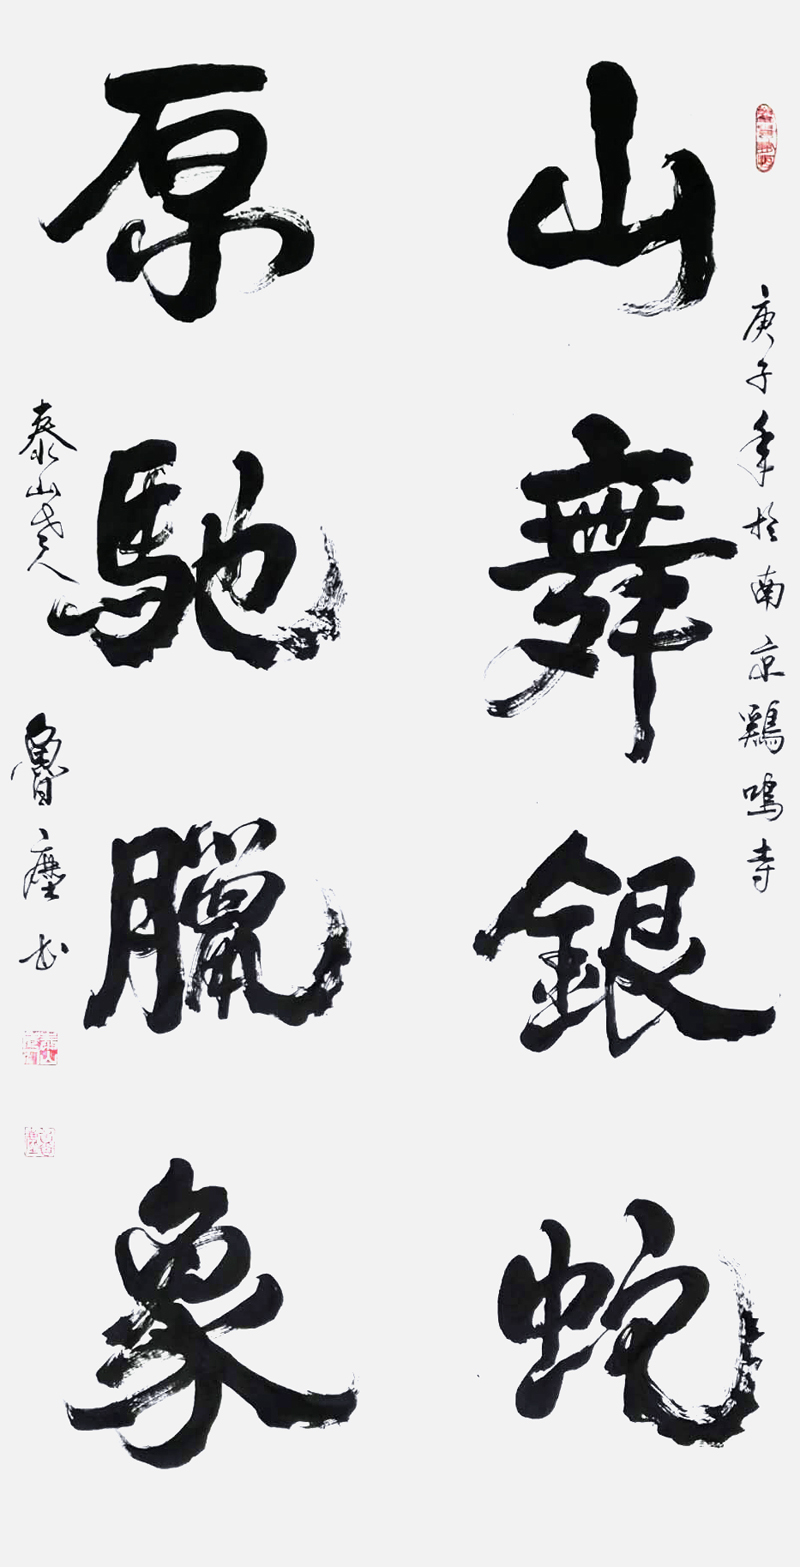 庚子年於南京鷄鳴寺
山舞銀蛇
原馳臘象
泰山老人 魯塵书